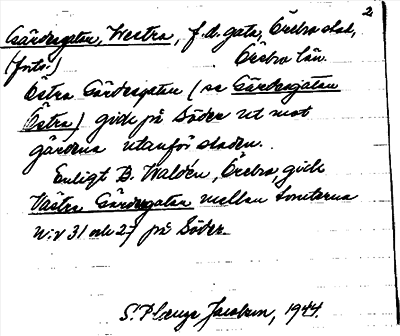 2
Gärdesgatan, Westra, f.d. gata, Örebro stad,
(forts.) Örebro län.
Östra Gärdesgatan (se Gärdesgatan
Östra) gick på Söder ut mot
gärdena utanför staden.
Enligt B. Waldén, Örebro, gick
Västra Gärdesgatan mellan tomterna
n:r 31 och 27 på Söder.
S. Plænge Jacobson, 1944.